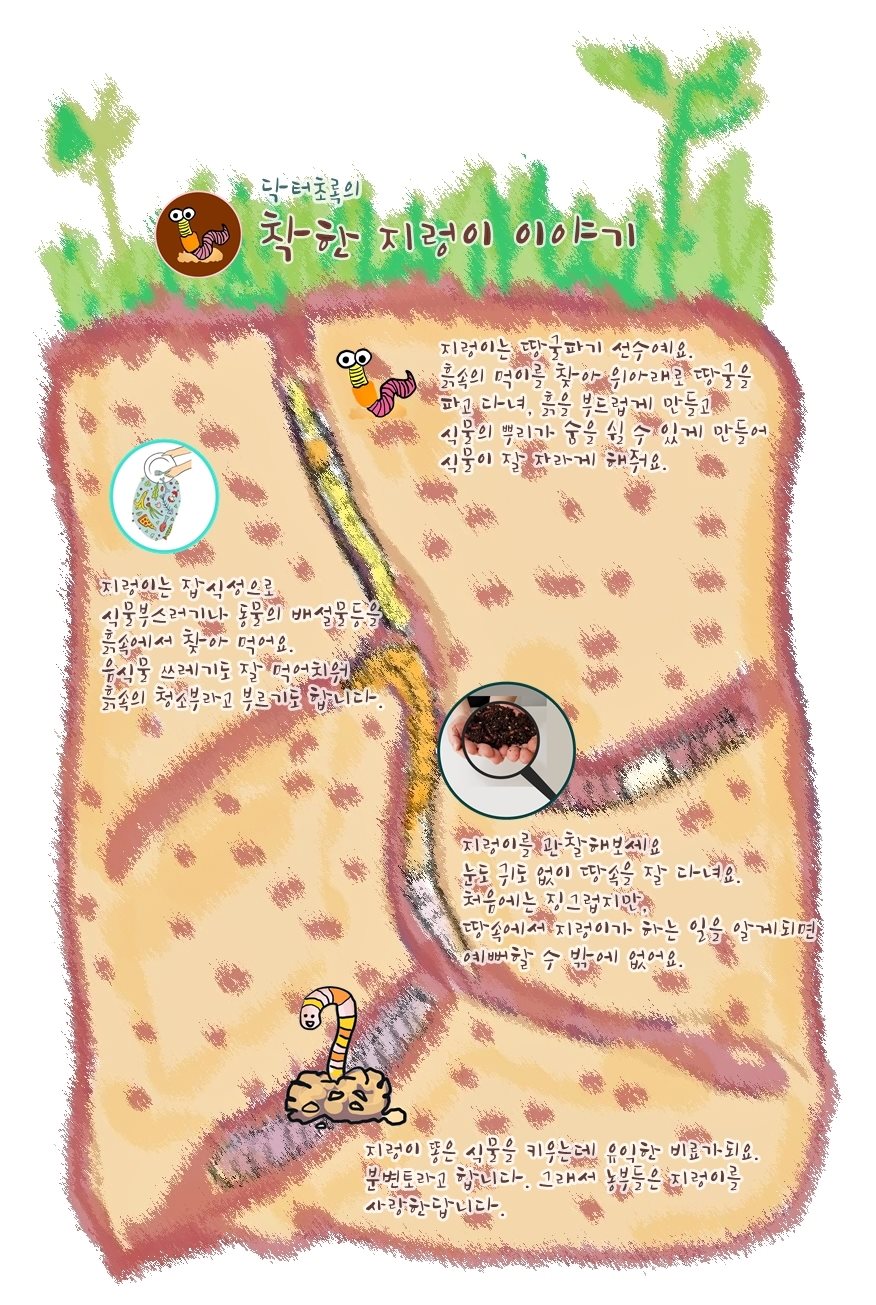 닥터초록의
착한 지렁이 이야기
지렁이는 땅굴파기 선수예요.
흙속의 먹이를 찾아 위아래로 땅굴을
파고 다녀, 흙을 부드럽게 만들고
식물의 뿌리가 숨을 쉴 수 있게 만들어
식물이 잘 자라게 해줘요.
지렁이는 잡식성으로
식물부스러기나 동물의 배설물등을
흙속에서 찾아 먹어요.
음식물 쓰레기도 잘 먹어치워
흙속의 청소부라고 부르기도 합니다.
지렁이를 관찰해보세요
눈도 귀도 없이 땅속을 잘 다녀요.
처음에는 징그럽지만,
땅속에서 지렁이가 하는 일을 알게되면
예뻐할 수 밖에 없어요.
지렁이 똥은 식물을 키우는데 유익한 비료가되요.
분변토라고 합니다. 그래서 농부들은 지렁이를
사랑한답니다.